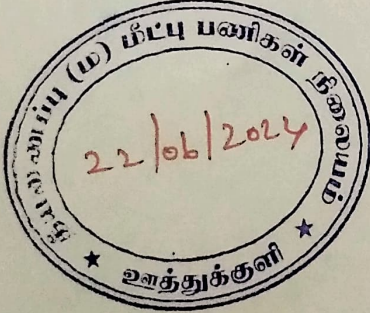 தீயணைப்பு (ம) மீட்பு பணிகள் நிலையம்
22/06/2024
★ ஊத்துக்குளி ★